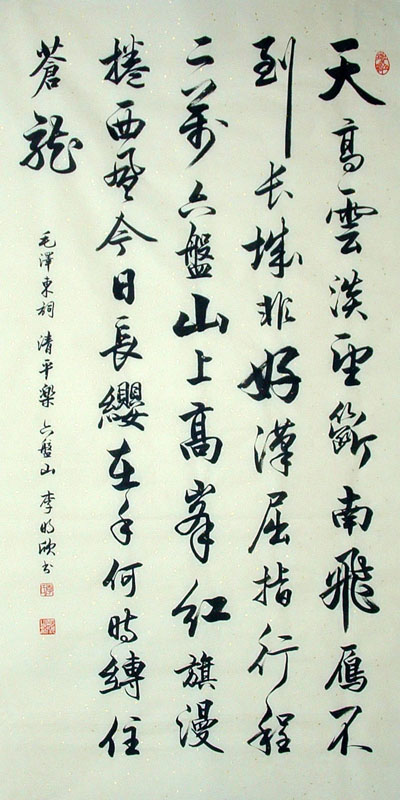 天高雲淡望斷南飛雁不
到长城非好漢屈指行程
二萬六盤山上高峯紅旗漫
捲西風今日長纓在手何時縛住
蒼龍
毛澤東詞 清平樂 六盤山 李 书